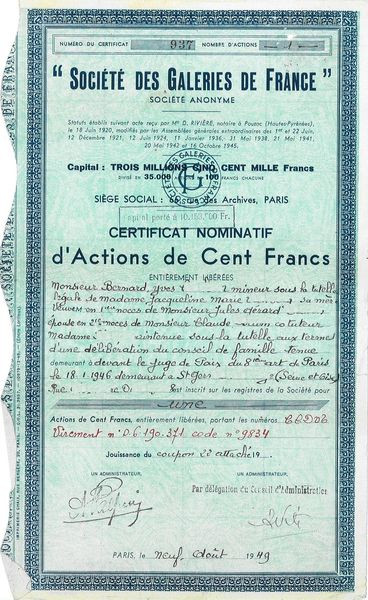 NUMÉRO DU CERTIFICAT 937 NOMBRE D'ACTIONS
" SOCIÉTÉ DES GALERIES DE FRANCE "
SOCIÉTÉ ANONYME
Statuts établis suivant acte reçu par Me D. RIVIÈRE, notaire à Pouzac (Hautes-Pyrénées),
le 18 Juin 1920, modifiés par les Assemblées générales extraordinaires des 1er et 22 Juin,
12 Décembre 1921, 12 Juin 1924, 11 Janvier 1936, 31 Mai 1938, 21 Mai 1941,
20 Mai 1942 et 16 Octobre 1945.
Capital : TROIS MILLIONS CINQ CENT MILLE Francs
DIVISÉ EN 35.000 100 FRANCS CHACUNE
SIÈGE SOCIAL : rue des Archives, PARIS
Capital porté à 10.153.000 Fr.
CERTIFICAT NOMINATIF
d'Actions de Cent Francs
ENTIÈREMENT LIBÉRÉES
Monsieur Bernard, Yves mineur sous la tutelle
légale de Madame Jacqueline Marie sa mère
en 1ères noces de Monsieur Jules Gérard
épouse en 2èmes noces de Monsieur Claude cotuteur
Madame maintenue sous la tutelle aux termes
d'une délibération du conseil de famille tenue
demeurant à devant le Juge de Paix du 8ème arr de Paris
le 18.1.1946 demeurant à St (Seine et Oise)
Rue est inscrit sur les registres de la Société pour
une
Actions de Cent Francs, entièrement libérées, portant les numéros.
Virement n° 06.190.371 code n° 9834
Jouissance du coupon 22 attaché 19
UN ADMINISTRATEUR, UN ADMINISTRATEUR,
Par délégation du Conseil d'Administration
PARIS, le neuf Août 1949